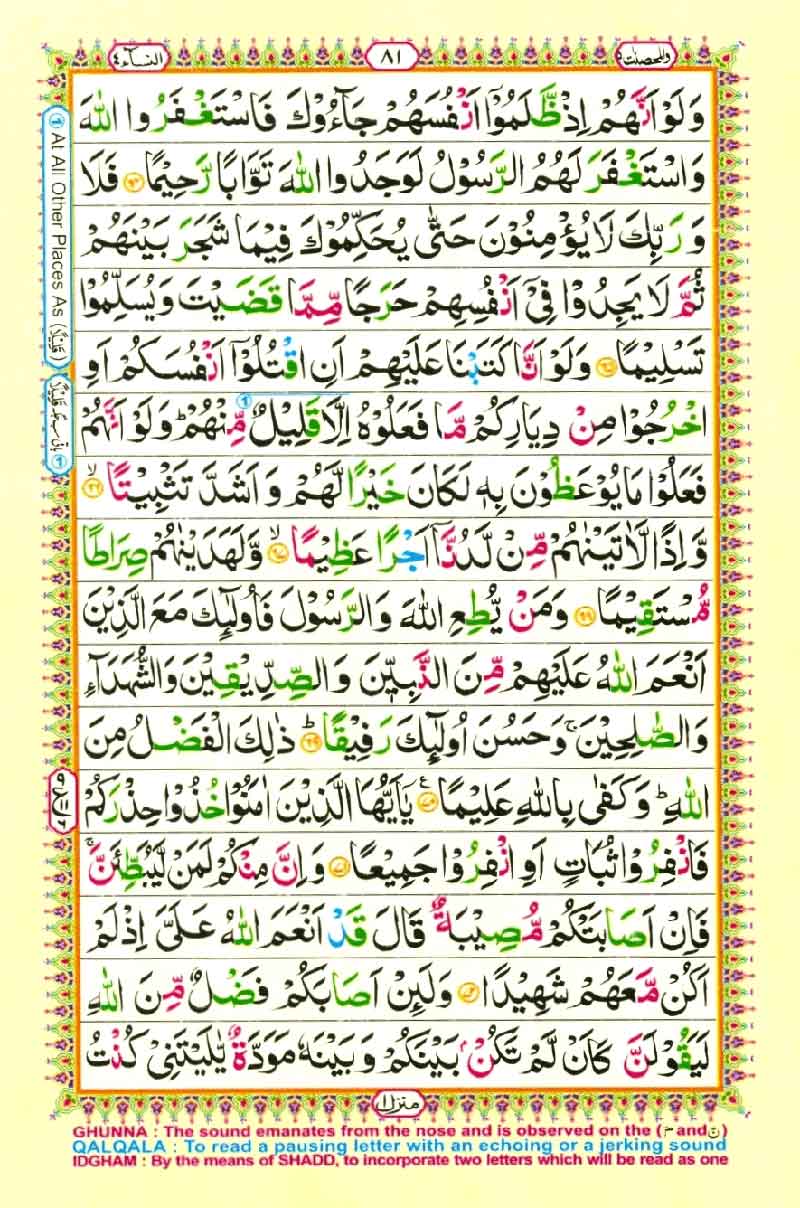 وَالْمُحْصَنٰتُ ٥
٨١
النِّسَآء ٤
وَلَوْ اَنَّهُمْ اِذْ ظَّلَمُوْۤا اَنْفُسَهُمْ جَآءُوْكَ فَاسْتَغْفَرُوا اللّٰهَ
وَاسْتَغْفَرَ لَهُمُ الرَّسُوْلُ لَوَجَدُوا اللّٰهَ تَوَّابًا رَّحِيْمًا ﴿٦٤﴾ فَلَا
وَرَبِّكَ لَا يُؤْمِنُوْنَ حَتّٰى يُحَكِّمُوْكَ فِيْمَا شَجَرَ بَيْنَهُمْ
ثُمَّ لَا يَجِدُوْا فِيْۤ اَنْفُسِهِمْ حَرَجًا مِّمَّا قَضَيْتَ وَيُسَلِّمُوْا
تَسْلِيْمًا ﴿٦٥﴾ وَلَوْ اَنَّا كَتَبْنَا عَلَيْهِمْ اَنِ اقْتُلُوْۤا اَنْفُسَكُمْ اَوِ
اخْرُجُوْا مِنْ دِيَارِكُمْ مَّا فَعَلُوْهُ اِلَّا قَلِيْلٌ مِّنْهُمْ ؕ وَلَوْ اَنَّهُمْ
فَعَلُوْا مَا يُوْعَظُوْنَ بِهٖ لَكَانَ خَيْرًا لَّهُمْ وَاَشَدَّ تَثْبِيْتًا ﴿٦٦﴾ ۙ
وَّاِذًا لَّاٰتَيْنٰهُمْ مِّنْ لَّدُنَّاۤ اَجْرًا عَظِيْمًا ﴿٦٧﴾ ۙ وَّلَهَدَيْنٰهُمْ صِرَاطًا
مُّسْتَقِيْمًا ﴿٦٨﴾ وَمَنْ يُّطِعِ اللّٰهَ وَالرَّسُوْلَ فَاُولٰٓئِكَ مَعَ الَّذِيْنَ
اَنْعَمَ اللّٰهُ عَلَيْهِمْ مِّنَ النَّبِيّٖنَ وَالصِّدِّيْقِيْنَ وَالشُّهَدَآءِ
وَالصّٰلِحِيْنَ ۚ وَحَسُنَ اُولٰٓئِكَ رَفِيْقًا ﴿٦٩﴾ ؕ ذٰلِكَ الْفَضْلُ مِنَ
اللّٰهِ ؕ وَكَفٰى بِاللّٰهِ عَلِيْمًا ﴿٧٠﴾ ع يٰۤاَيُّهَا الَّذِيْنَ اٰمَنُوْا خُذُوْا حِذْرَكُمْ
فَانْفِرُوْا ثُبَاتٍ اَوِ انْفِرُوْا جَمِيْعًا ﴿٧١﴾ وَاِنَّ مِنْكُمْ لَمَنْ لَّيُبَطِّئَنَّ ۚ
فَاِنْ اَصَابَتْكُمْ مُّصِيْبَةٌ قَالَ قَدْ اَنْعَمَ اللّٰهُ عَلَيَّ اِذْ لَمْ
اَكُنْ مَّعَهُمْ شَهِيْدًا ﴿٧٢﴾ وَلَئِنْ اَصَابَكُمْ فَضْلٌ مِّنَ اللّٰهِ
لَيَقُوْلَنَّ كَاَنْ لَّمْ تَكُنْۢ بَيْنَكُمْ وَبَيْنَهٗ مَوَدَّةٌ يّٰلَيْتَنِيْ كُنْتُ
① At All Other Places As (قَلِيْلًا)
منزل ١
GHUNNA : The sound emanates from the nose and is observed on the (مّ and نّ)
QALQALA : To read a pausing letter with an echoing or a jerking sound
IDGHAM : By the means of SHADD, to incorporate two letters which will be read as one